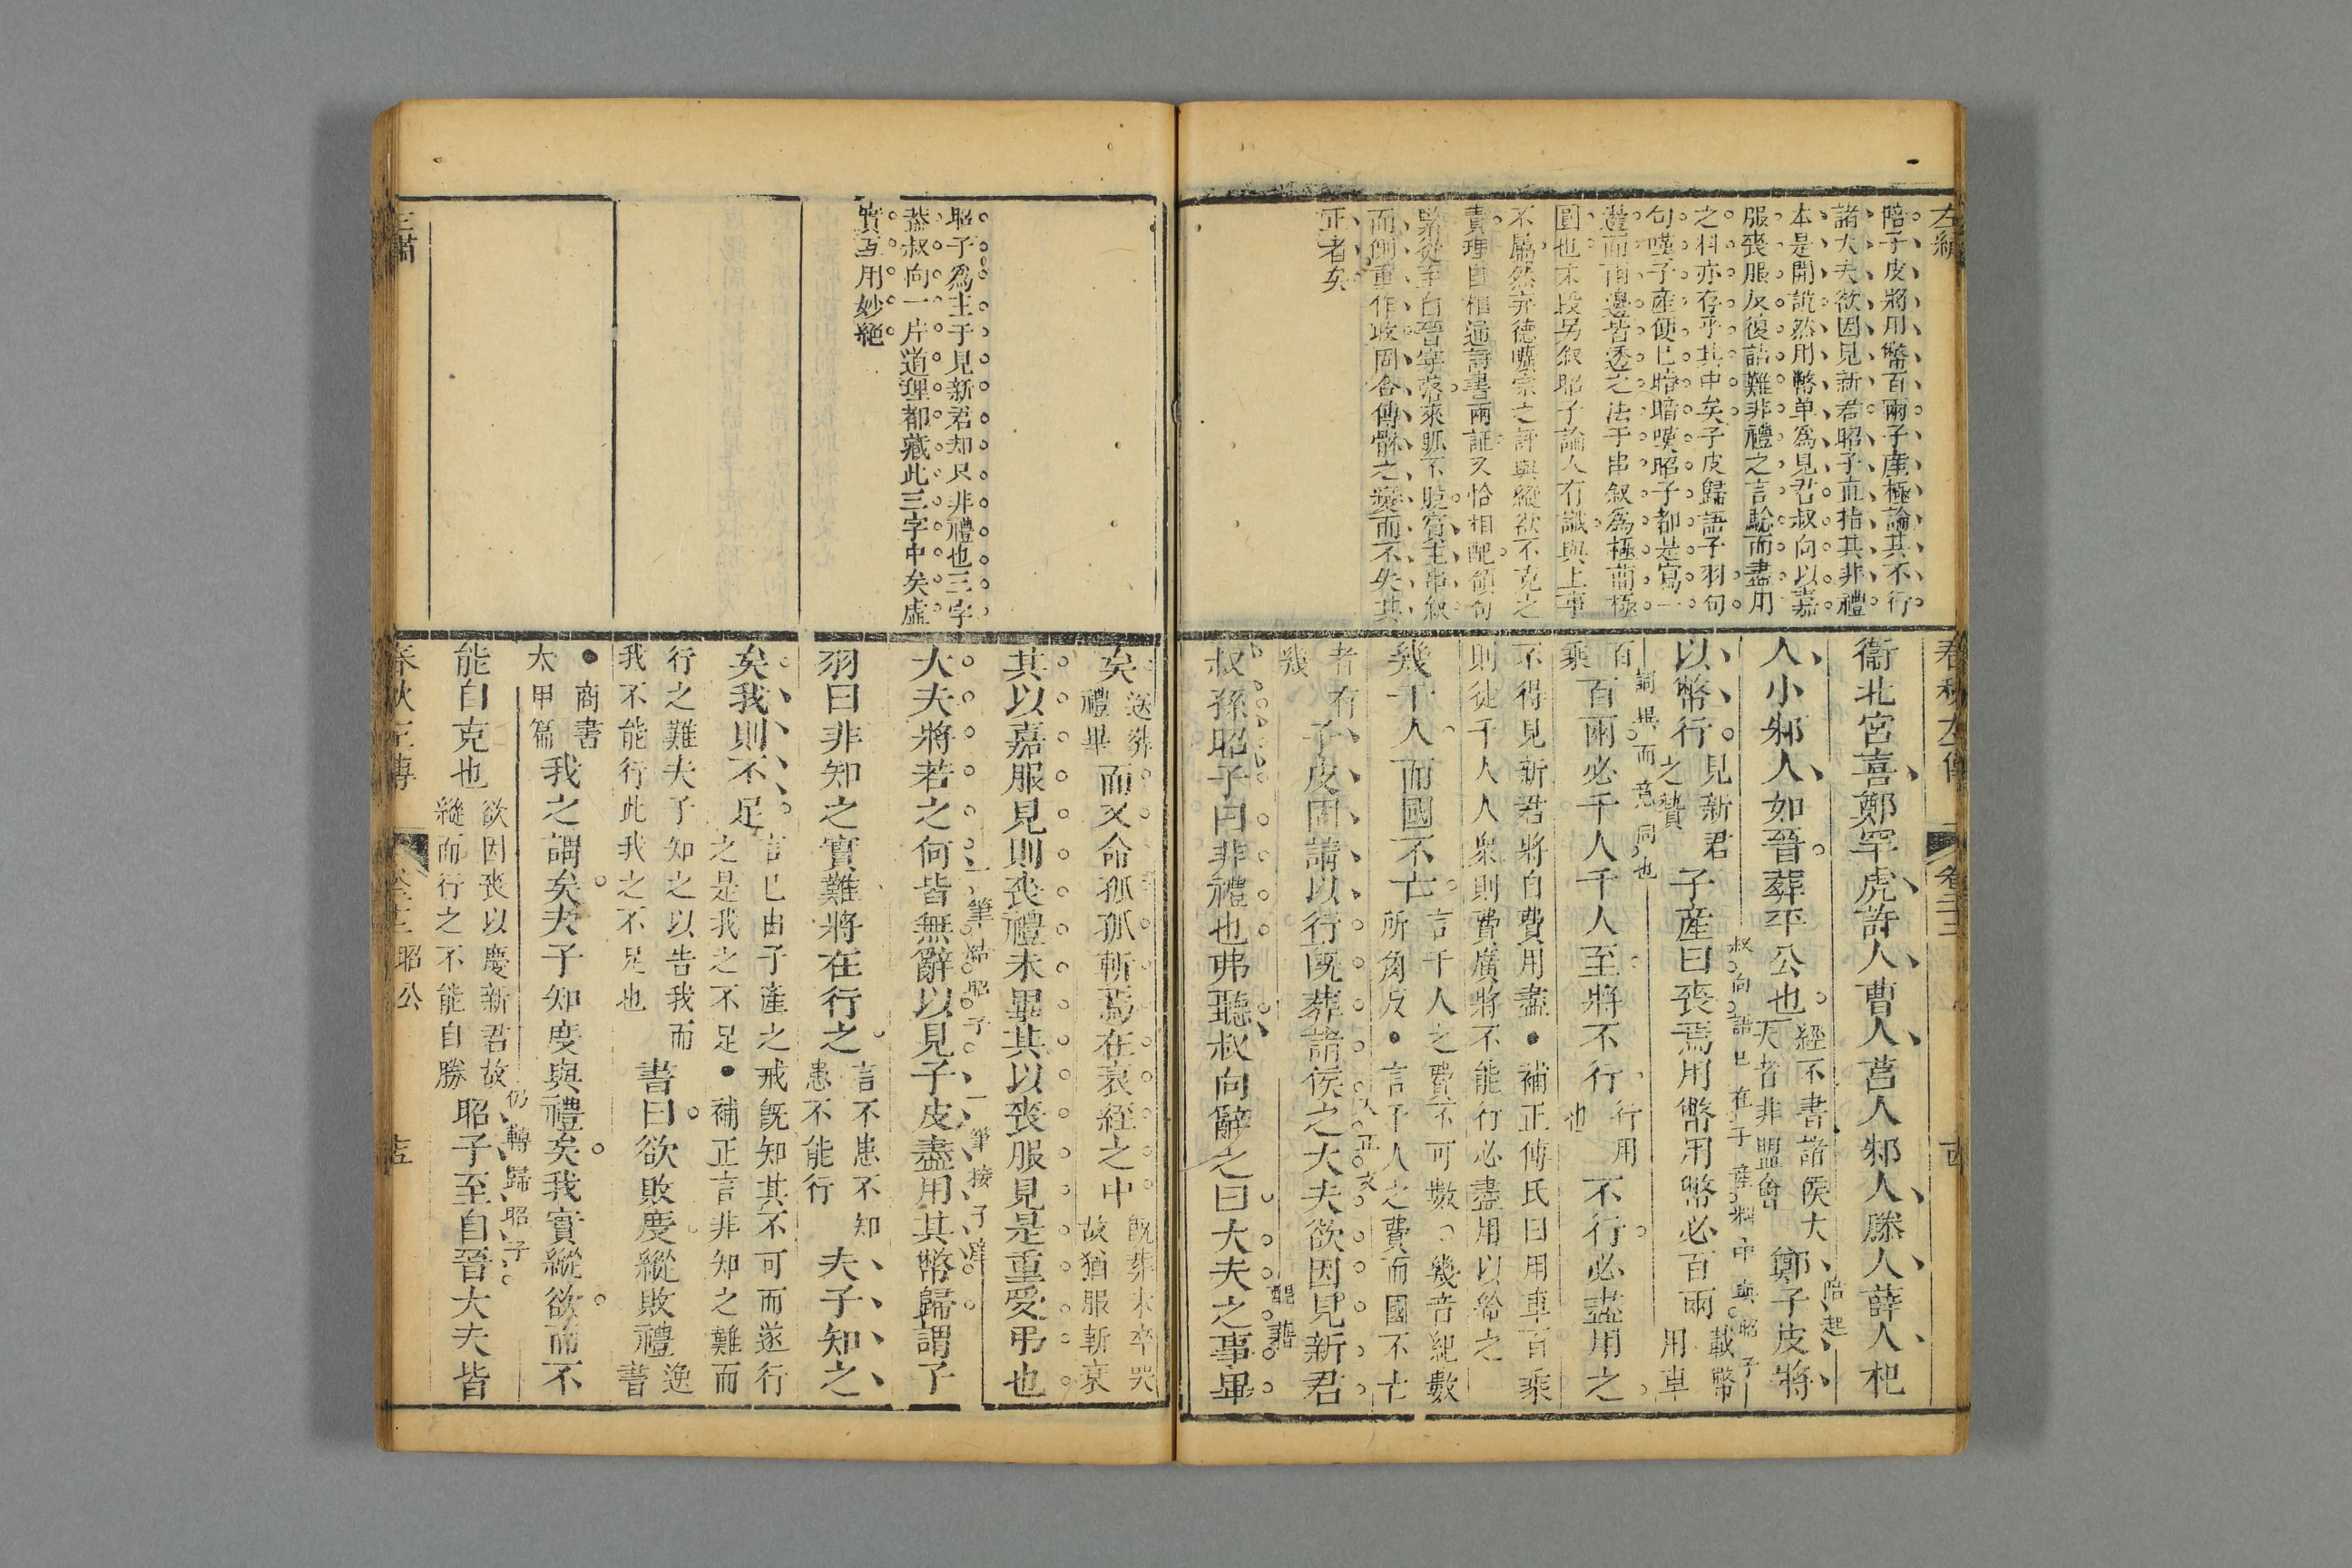 左繡
陪子皮將用幣百兩子產極論其不行
諸大夫欲因見新君昭子直指其非禮
本是開說然用幣单為見君叔向以嘉
服喪服反復詰難非禮之言馳而盡用
之料亦存乎其中矣子皮歸語子羽句
句嘆子產便已暗暗嘆昭子都是寫一
邊而兩邊皆透之法于串叙為極簡極
圓也末段另叙昭子論人有識與上事
不屬然弃德曠宗之評與縱欲不克之
責理自相通詩書兩証又恰相配領句
緊從至自晉寧落來脈不脫賓主串叙
而側重作收局合傳骵之變而不失其
正者矣
春秋左傳
卷二十二
衞北宮喜鄭罕虎許人曹人莒人邾人滕人薛人杞
人小邾人如晉葬平公也
經不書諸侯大
夫者非盟會
鄭子皮將
陪起
叔向語已在子產料中與昭子
以幣行
見新君
之贄
子產曰喪焉用幣用幣必百兩
載幣
用車
詞異而意同也
百
乘
百兩必千人千人至將不行
行用
也
不行必盡用之
不得見新君將自費用盡●補正傅氏曰用車百乘
則徒千人人衆則費廣將不能行必盡用以給之
幾千人而國不亡
言千人之費不可數○幾音紀數
所角反●言千人之費而國不亡
者有
幾
子皮固請以行既葬諸侯之大夫欲因見新君
入正文
叔孫昭子曰非禮也弗聽叔向辭之曰大夫之事畢
矣
送葬
禮畢
而又命孤孤斬焉在衰絰之中
既葬未卒哭
故猶服斬衰
其以嘉服見則喪禮未畢其以喪服見是重受弔也
大夫將若之何皆無辭以見子皮盡用其幣歸謂子
一筆結昭子
一筆接子產
羽曰非知之實難將在行之
言不患不知
患不能行
夫子知之
矣我則不足
言已由子產之戒旣知其不可而遂行
之是我之不足●補正言非知之難而
行之難夫子知之以告我而
我不能行此我之不足也
書曰欲敗度縱敗禮
逸
書
●商書
太甲篇
我之謂矣夫子知度與禮矣我實縱欲而不
能自克也
欲因喪以慶新君故
縱而行之不能自勝
仍轉歸昭子
昭子至自晉大夫皆
昭子為主于見新君却只非禮也三字
蓋叔向一片道理都藏此三字中矣虛
實互用妙絕
春秋左傳
昭公